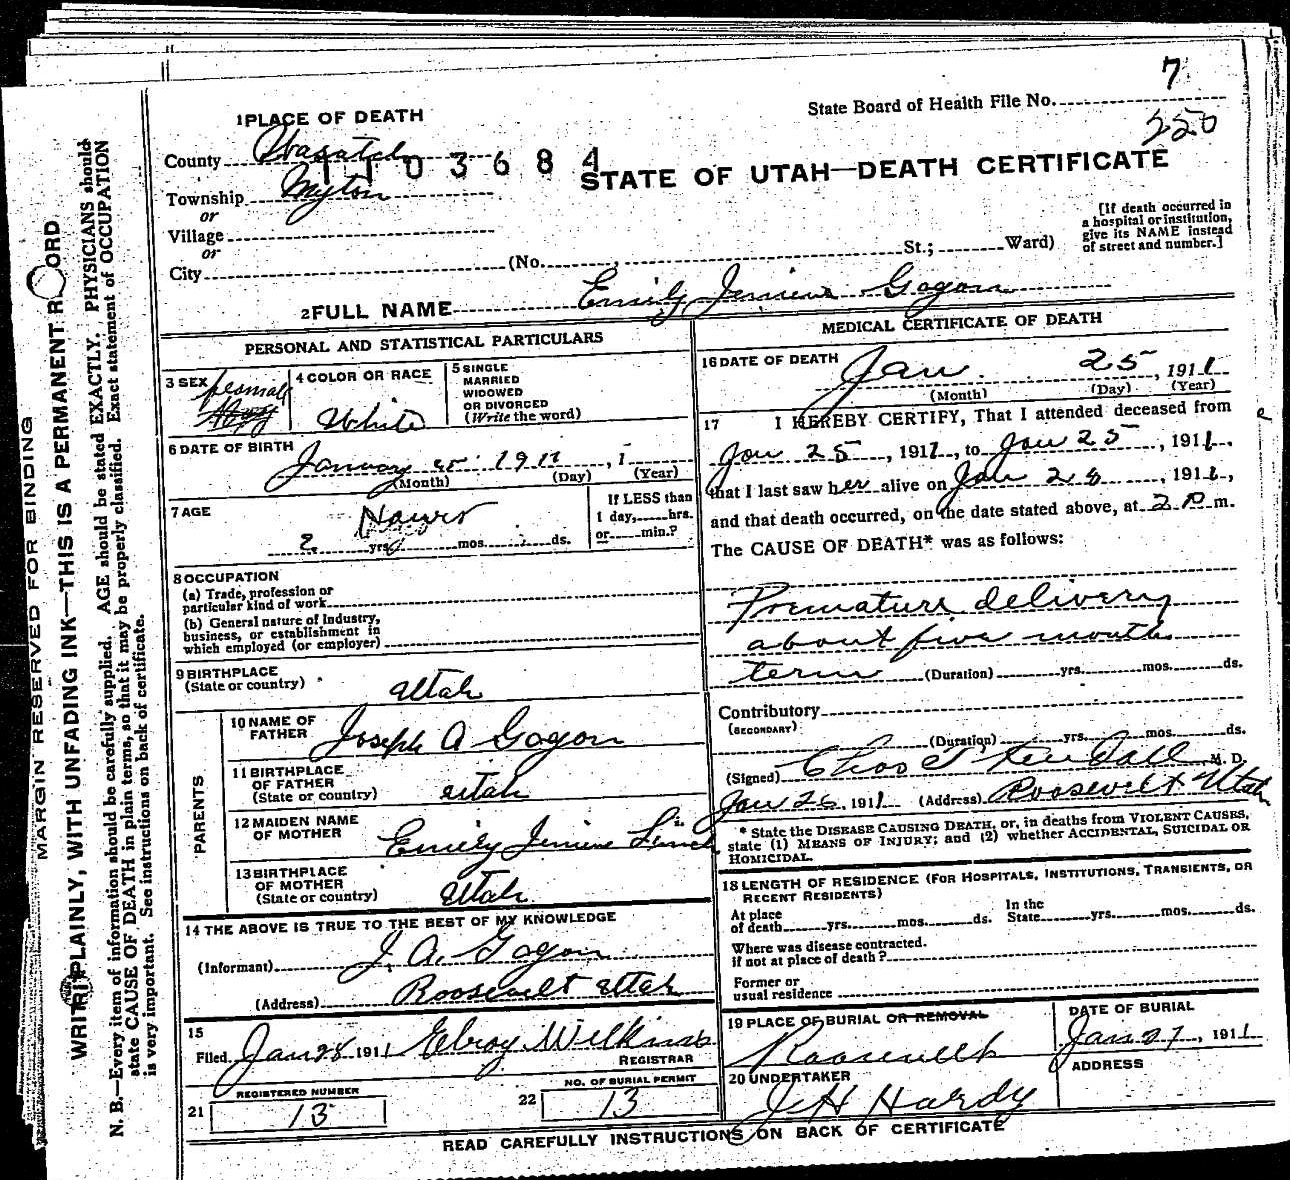 7
State Board of Health File No.
250
1 PLACE OF DEATH
County Wasatch
1103684
STATE OF UTAH—DEATH CERTIFICATE
Township Myton
or
Village
or
City (No. , St.; Ward)
[If death occurred in
a hospital or institution,
give its NAME instead
of street and number.]
2 FULL NAME Emily Jenieve Gagon
PERSONAL AND STATISTICAL PARTICULARS
3 SEX female
4 COLOR OR RACE
White
5 SINGLE
MARRIED
WIDOWED
OR DIVORCED
(Write the word)
6 DATE OF BIRTH
January 25 1911 , 1
(Month) (Day) (Year)
7 AGE
Hours
2 yrs. mos. ds.
If LESS than
1 day, hrs.
or min.?
8 OCCUPATION
(a) Trade, profession or
particular kind of work
(b) General nature of industry,
business, or establishment in
which employed (or employer)
9 BIRTHPLACE
(State or country)
Utah
PARENTS
10 NAME OF
FATHER
Joseph A Gagon
11 BIRTHPLACE
OF FATHER
(State or country)
Utah
12 MAIDEN NAME
OF MOTHER
Emily Jenieve
13 BIRTHPLACE
OF MOTHER
(State or country)
Utah
14 THE ABOVE IS TRUE TO THE BEST OF MY KNOWLEDGE
(Informant) J. A. Gagon
(Address) Roosevelt Utah
15
Filed Jan 28 1911 Elroy Wilkins
REGISTRAR
REGISTERED NUMBER
21 13
NO. OF BURIAL PERMIT
22 13
MEDICAL CERTIFICATE OF DEATH
16 DATE OF DEATH
Jan. 25 , 1911
(Month) (Day) (Year)
17 I HEREBY CERTIFY, That I attended deceased from
Jan 25 , 1911, to Jan 25 , 1911,
that I last saw her alive on Jan 25 , 1911,
and that death occurred, on the date stated above, at 2 P m.
The CAUSE OF DEATH* was as follows:
Premature delivery
about five month
term (Duration) yrs. mos. ds.
Contributory
(SECONDARY)
(Duration) yrs. mos. ds.
(Signed) Chas M. D.
Jan 26, 1911 (Address) Roosevelt Utah
* State the DISEASE CAUSING DEATH, or, in deaths from VIOLENT CAUSES,
state (1) MEANS OF INJURY; and (2) whether ACCIDENTAL, SUICIDAL OR
HOMICIDAL.
18 LENGTH OF RESIDENCE (FOR HOSPITALS, INSTITUTIONS, TRANSIENTS, OR
RECENT RESIDENTS)
At place
of death yrs. mos. ds.
In the
State yrs. mos. ds.
Where was disease contracted.
if not at place of death?
Former or
usual residence
19 PLACE OF BURIAL OR REMOVAL
Roosevelt
DATE OF BURIAL
Jan 27 , 1911
20 UNDERTAKER
J H Hardy
ADDRESS
READ CAREFULLY INSTRUCTIONS ON BACK OF CERTIFICATE
MARGIN RESERVED FOR BINDING
WRITE PLAINLY, WITH UNFADING INK—THIS IS A PERMANENT R ORD
N. B.—Every item of information should be carefully supplied. AGE should be stated EXACTLY. PHYSICIANS should
state CAUSE OF DEATH in plain terms, so that it may be properly classified. Exact statement of OCCUPATION
is very important. See instructions on back of certificate.